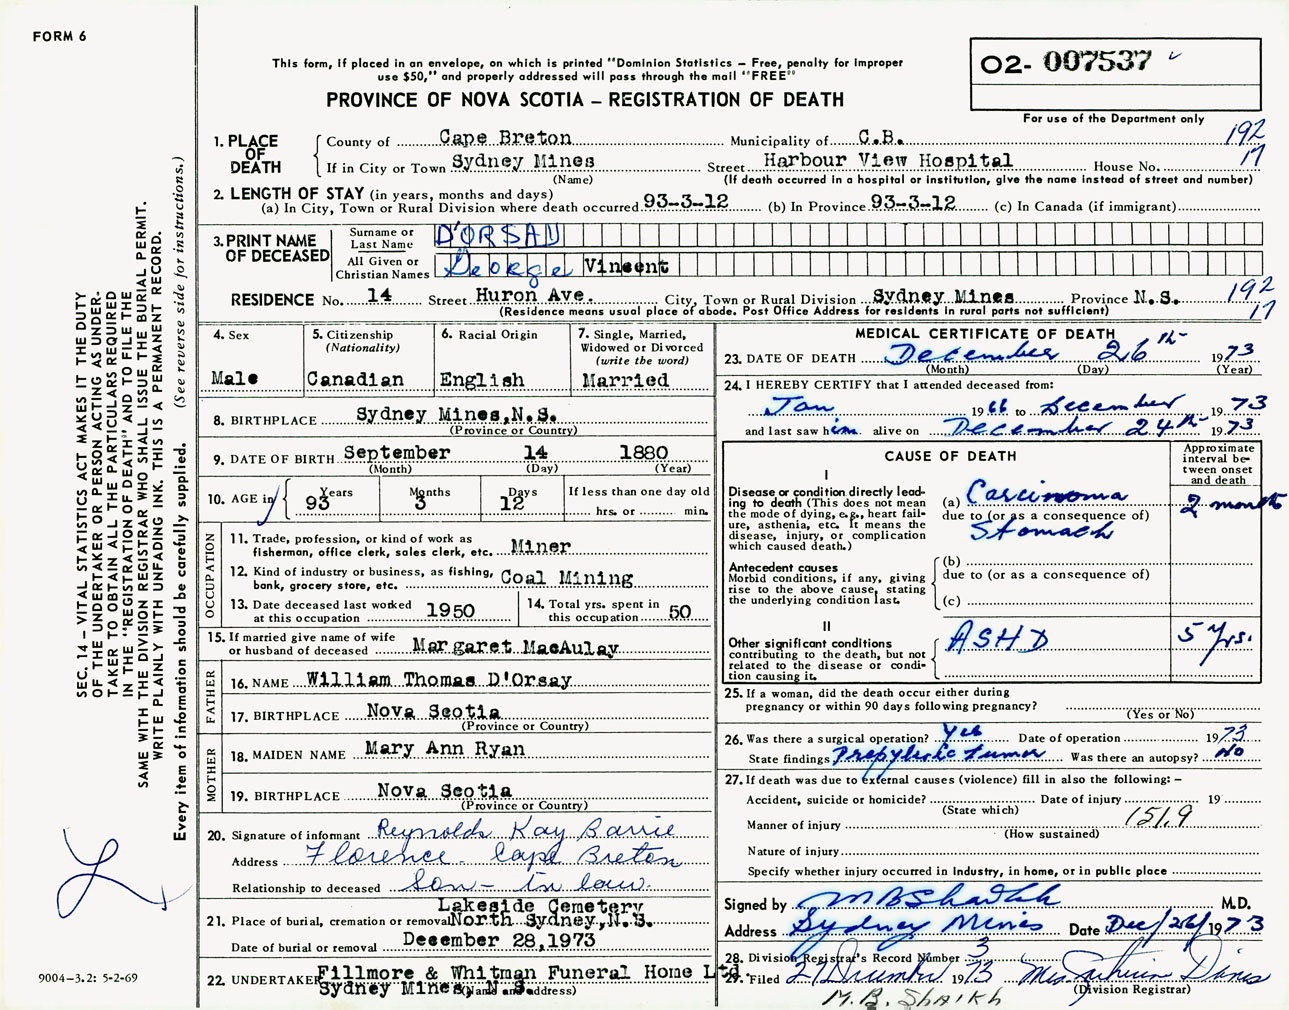 FORM 6
This form, if placed in an envelope, on which is printed "Dominion Statistics – Free, penalty for improper
use $50," and properly addressed will pass through the mail "FREE"
PROVINCE OF NOVA SCOTIA – REGISTRATION OF DEATH
O2- 007537
For use of the Department only
1. PLACE OF DEATH
County of Cape Breton Municipality of C.B. 192
If in City or Town Sydney Mines Street Harbour View Hospital House No. 17
(Name) (If death occurred in a hospital or institution, give the name instead of street and number)
2. LENGTH OF STAY (in years, months and days)
(a) In City, Town or Rural Division where death occurred 93-3-12 (b) In Province 93-3-12 (c) In Canada (if immigrant)
3. PRINT NAME OF DECEASED
Surname or Last Name D'ORSAY
All Given or Christian Names George Vincent
RESIDENCE No. 14 Street Huron Ave. City, Town or Rural Division Sydney Mines Province N.S. 192
(Residence means usual place of abode. Post Office Address for residents in rural parts not sufficient) 17
4. Sex
Male
5. Citizenship
(Nationality)
Canadian
6. Racial Origin
English
7. Single, Married,
Widowed or Divorced
(write the word)
Married
8. BIRTHPLACE Sydney Mines, N.S.
(Province or Country)
9. DATE OF BIRTH September 14 1880
(Month) (Day) (Year)
10. AGE in
Years 93
Months 3
Days 12
If less than one day old
hrs. or min.
OCCUPATION
11. Trade, profession, or kind of work as
fisherman, office clerk, sales clerk, etc. Miner
12. Kind of industry or business, as fishing,
bank, grocery store, etc. Coal Mining
13. Date deceased last worked
at this occupation 1950
14. Total yrs. spent in
this occupation 50
15. If married give name of wife
or husband of deceased Margaret MacAulay
FATHER
16. NAME William Thomas D'Orsay
17. BIRTHPLACE Nova Scotia
(Province or Country)
MOTHER
18. MAIDEN NAME Mary Ann Ryan
19. BIRTHPLACE Nova Scotia
(Province or Country)
20. Signature of informant Reynolds Kay Barrie
Address Florence - Cape Breton
Relationship to deceased Son - in law.
21. Place of burial, cremation or removal Lakeside Cemetery
North Sydney, N.S.
Date of burial or removal December 28, 1973
22. UNDERTAKER Fillmore & Whitman Funeral Home Ltd.
Sydney Mines, N.S.
(Name and address)
MEDICAL CERTIFICATE OF DEATH
23. DATE OF DEATH December 26th 1973
(Month) (Day) (Year)
24. I HEREBY CERTIFY that I attended deceased from:
Jan 1966 to December 1973
and last saw him alive on December 24th 1973
CAUSE OF DEATH
Approximate
interval be-
tween onset
and death
I
Disease or condition directly lead-
ing to death (This does not mean
the mode of dying, e.g., heart fail-
ure, asthenia, etc. It means the
disease, injury, or complication
which caused death.)
(a) Carcinoma 2 months
due to (or as a consequence of)
Stomach
Antecedent causes
Morbid conditions, if any, giving
rise to the above cause, stating
the underlying condition last.
(b)
due to (or as a consequence of)
(c)
II
Other significant conditions
contributing to the death, but not
related to the disease or condi-
tion causing it.
ASHD 5 yrs.
25. If a woman, did the death occur either during
pregnancy or within 90 days following pregnancy?
(Yes or No)
26. Was there a surgical operation? Yes Date of operation 1973
State findings Prepyloric tumor Was there an autopsy? No
27. If death was due to external causes (violence) fill in also the following: –
Accident, suicide or homicide? Date of injury 19
(State which)
Manner of injury 151.9
(How sustained)
Nature of injury
Specify whether injury occurred in industry, in home, or in public place
Signed by M B Shaikh M.D.
Address Sydney Mines Date Dec/26/1973
28. Division Registrar's Record Number 3
29. Filed 27 December 1973
(Division Registrar)
M.B. SHAIKH
SEC. 14 – VITAL STATISTICS ACT MAKES IT THE DUTY
OF THE UNDERTAKER OR PERSON ACTING AS UNDER-
TAKER TO OBTAIN ALL THE PARTICULARS REQUIRED
IN THE "REGISTRATION OF DEATH" AND TO FILE THE
SAME WITH THE DIVISION REGISTRAR WHO SHALL ISSUE THE BURIAL PERMIT.
WRITE PLAINLY WITH UNFADING INK. THIS IS A PERMANENT RECORD.
Every item of information should be carefully supplied. (See reverse side for instructions.)
9004-3.2: 5-2-69